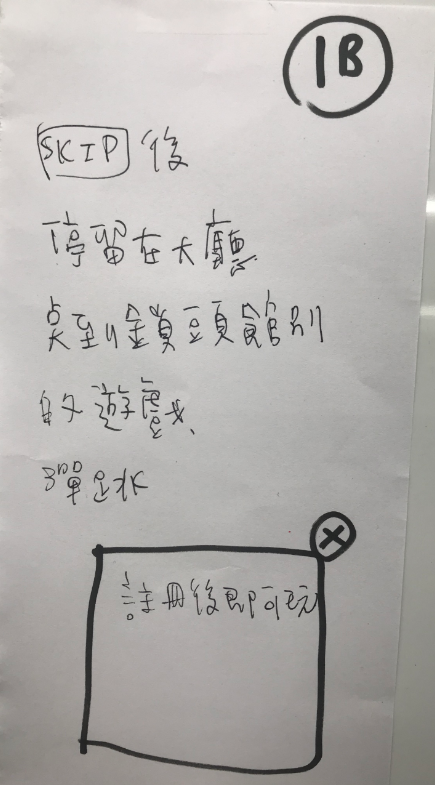 1B
SKIP 後
停留在大廳
奌到鎖頭館別
的遊戲、
彈跳
X
註冊後即可玩